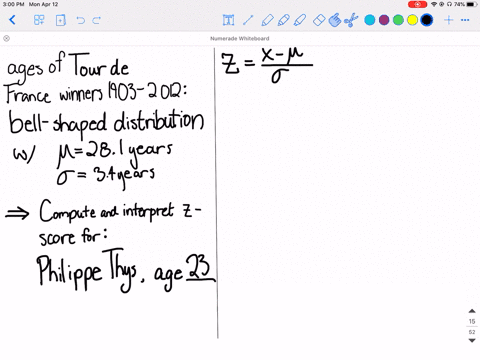 3:00 PM Mon Apr 12
74%
Numerade Whiteboard
ages of Tour de
France winners 1903-2012:
bell-shaped distribution
w/ μ = 28.1 years
σ = 3.4 years
⇒ Compute and interpret z-
score for:
Philippe Thys, age 23
z = x-μ / σ
15
52